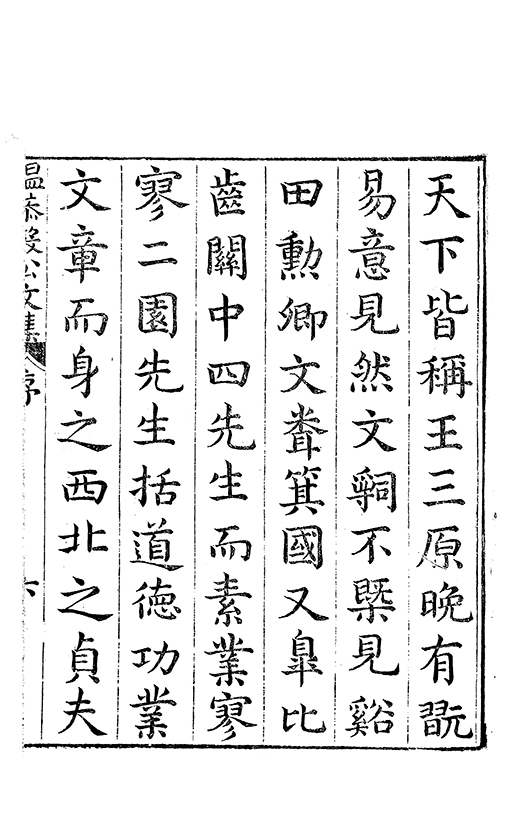 天下皆稱王三原晚有翫
易意見然文𤔲不槩見谿
田勲卿文箕國又臯比
齒關中四先生而素業寥
寥二園先生括道德功業
文章而身之西北之貞夫
溫恭毅公文集 序 六